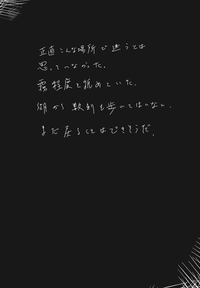 正直こんな場所で迷うとは
思っていなかった。
程度と眺めていた。
から数刻も歩いてはいない。
まだ戻ることはできそうだ。